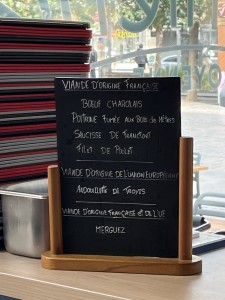 VIANDE D'ORIGINE FRANÇAISE
BOEUF CHAROLAIS
POITRINE FUMÉE AUX BOIS DE HÊTRES
SAUCISSE DE FRANCFORT
FILET DE POULET
VIANDE D'ORIGINE DE L'UNION EUROPÉENNE
ANDOUILLETTE DE TROYES
VIANDE D'ORIGINE FRANÇAISE ET DE L'UE
MERGUEZ